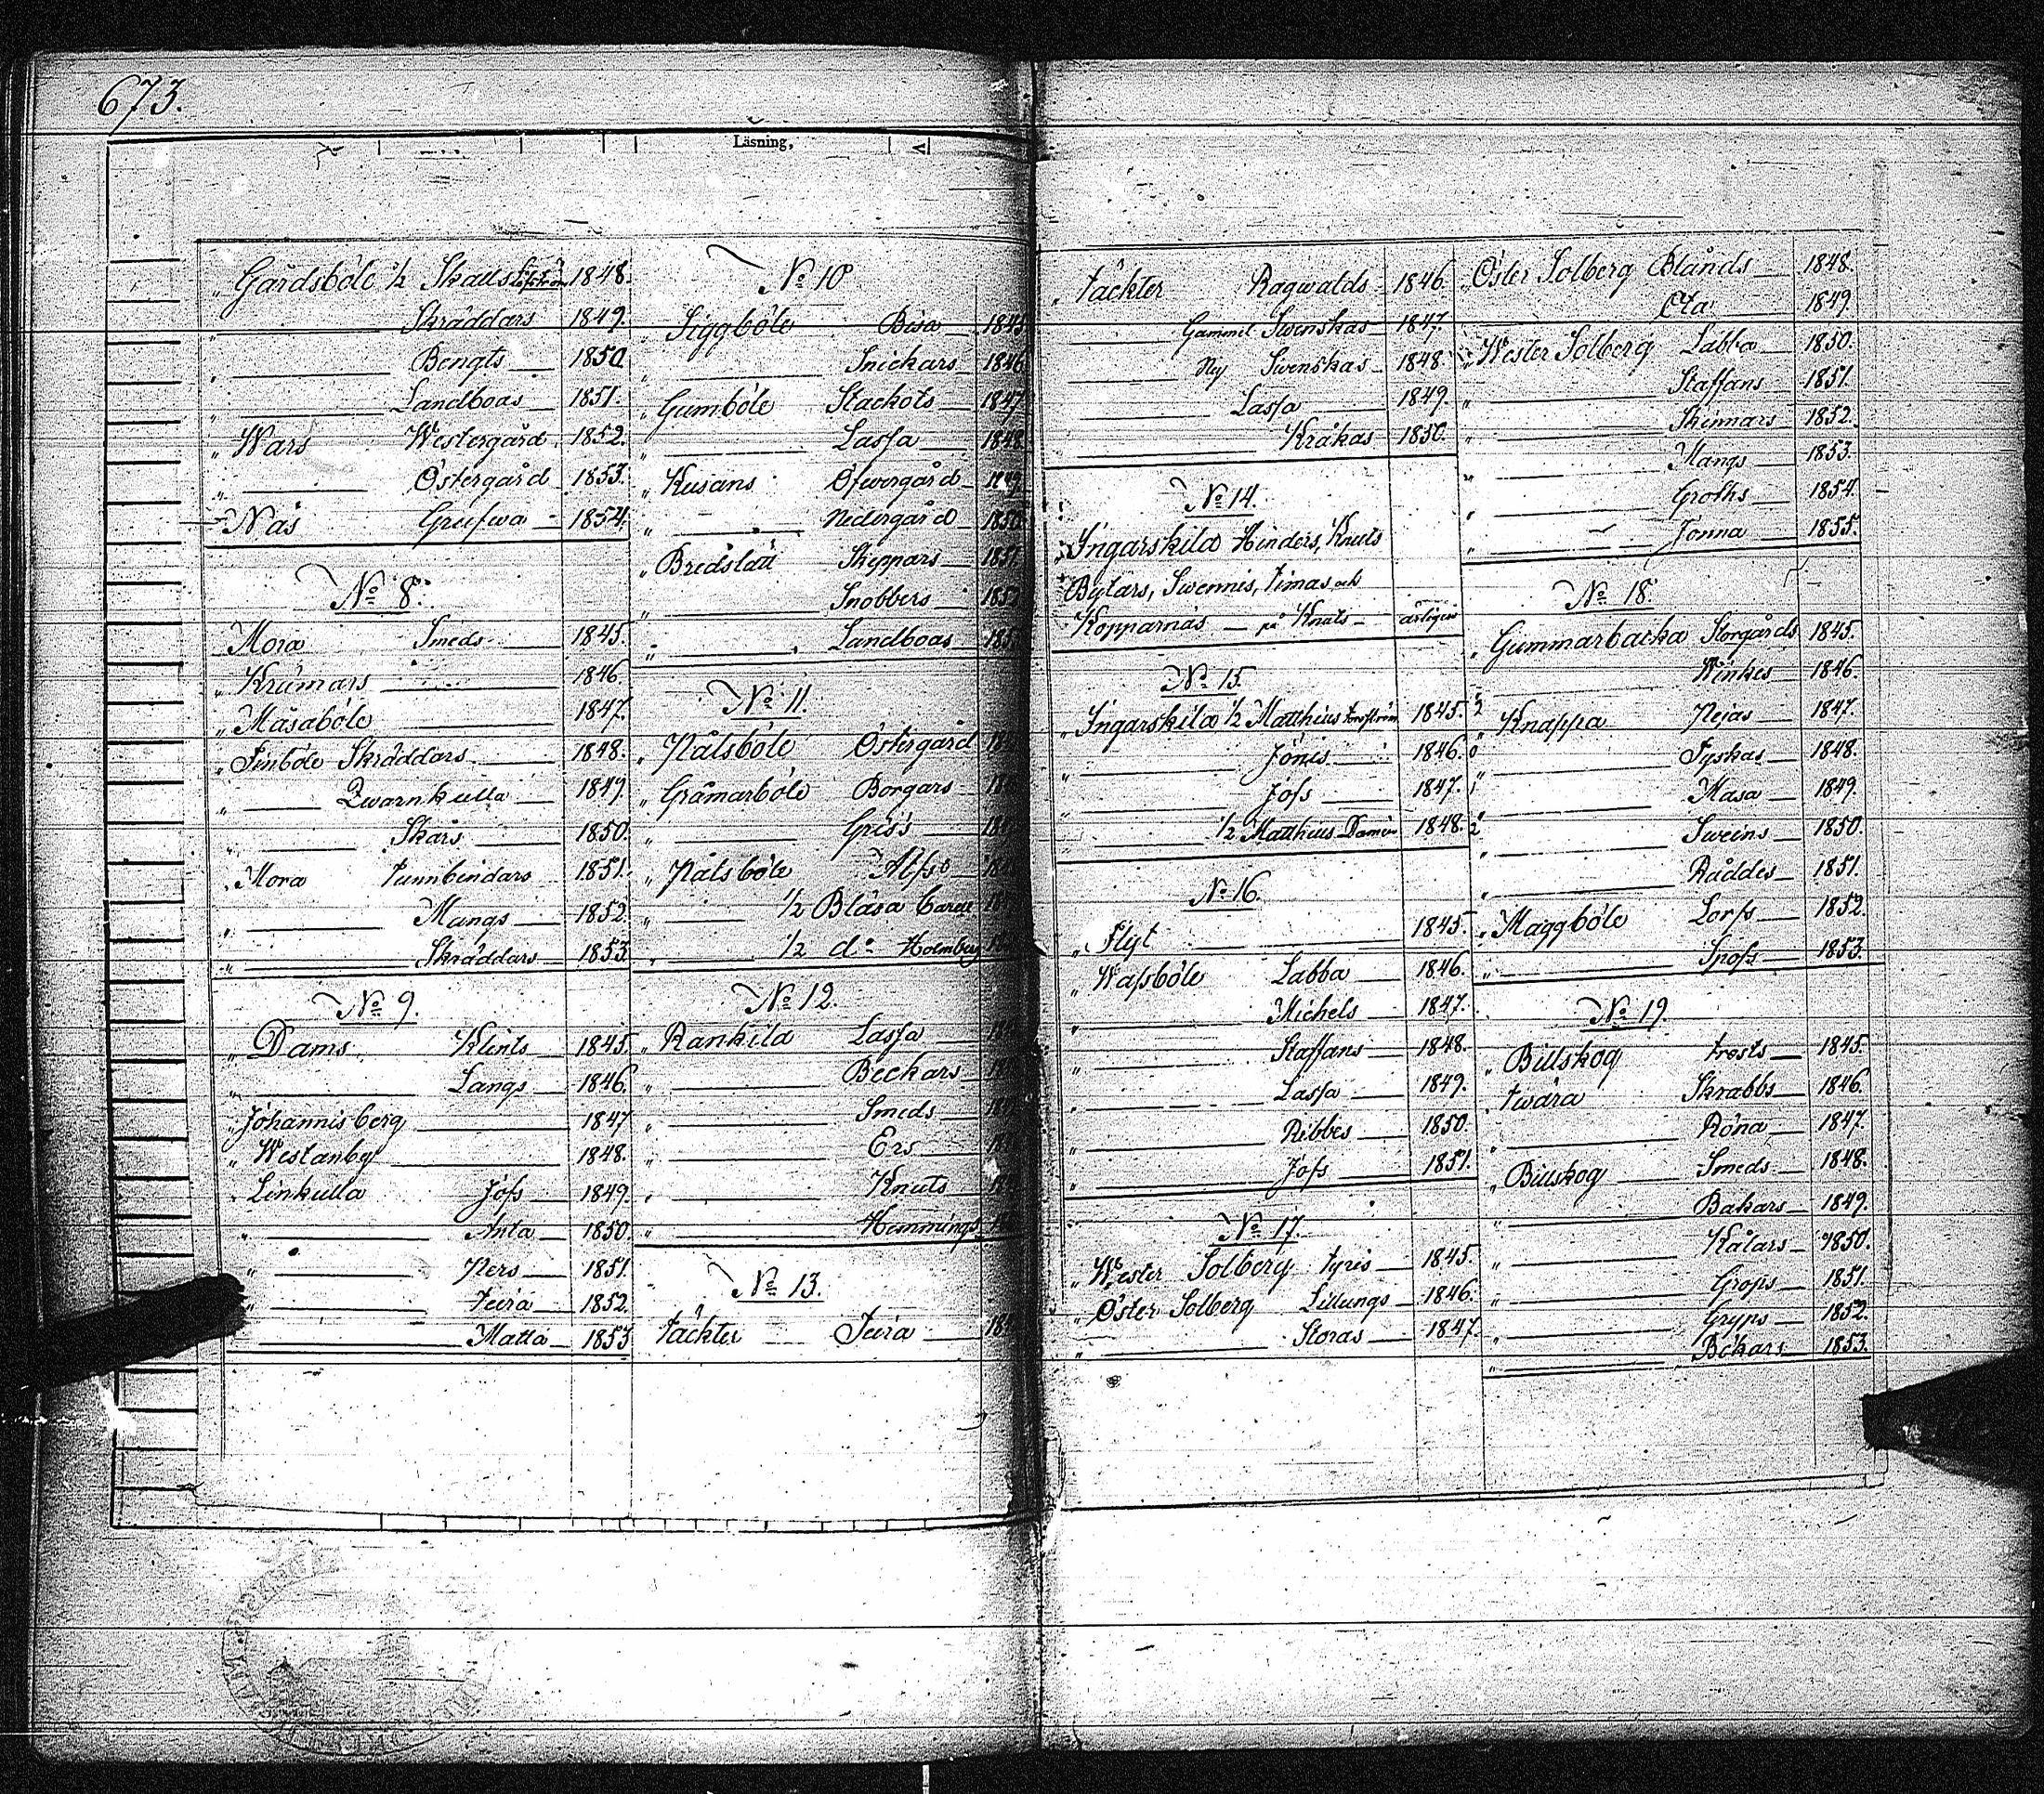 673.
Läsning,
„ Gårdsböle ½ Skatts 1848.
„ Skräddars 1849.
„ Bengts 1850
„ Landboas 1851.
„ Wars Westergård 1852.
„ Östergård 1853.
Näs Grefwa 1854.
No 8.
Mora Smeds 1845
„ Krämars 1846
„ Måsaböle 1847.
„ Finböle Skräddars 1848.
„ Qwarnkulla 1849
„ Skårs 1850.
„ Mora Tunnbindars 1851.
„ Mangs 1852.
„ Skräddars 1853.
No 9.
„ Dams Klints 1845
„ Langs 1846.
„ Johannisberg 1847
„ Westanby 1848.
„ Linkulla Jofs 1849.
„ Anta 1850.
„ Pers 1851.
„ Teira 1852.
Matta 1853
No 10
„ Siggböle Bisa 1845
„ Snickars 1846
„ Gumböle Stackots 1847
„ Lassa 1848
„ Kusans Öfwergård 1849
„ Nedergård 1850
„ Bredslätt Skeppars 1851
„ Snobbers 1852
„ Landboas
No 11.
„ Pålsböle Östergård
„ Gråmarböle Borgars
„ Griss
„ Pålsböle
„ ½ Blåsa
„ ½ do Holmberg
No 12.
„ Rankila Lassa
„ Beckars
„ Smeds
„ Ers
„ Knuts
„ Hemmings
No 13.
Täckter Teira
„ Täckter Ragwalds 1846.
Gammel Swenskas 1847.
Ny Swenskas 1848
Lassa 1849.
Kråkas 1850.
No 14.
„ Ingarskila Hinders, Knuts
Bytars, Swennis, Timas och
Kopparnäs på Knuts årligen
No 15.
„ Ingarskila ½ Matthius 1845.
„ Jönis 1846.
„ Jofs 1847.
„ ½ Matthius 1848.
No 16.
„ Flyt 1845.
„ Wassböle Labba 1846.
„ Michels 1847.
„ Staffans 1848.
„ Lassa 1849.
„ Ribbes 1850.
„ Jofs 1851.
No 17.
„ Wester Solberg Tyris 1845.
„ Öster Solberg Lillungs 1846.
„ Storas 1847.
Öster Solberg Blånds 1848.
Ota 1849.
Wester Solberg Labba 1850.
„ Staffans 1851.
„ Skinnars 1852.
„ Mangs 1853.
„ Groths 1854.
„ Jonna 1855.
No 18.
„ Gummarbacka Storgårds 1845.
Winkes 1846.
„ Knappa Pejas 1847.
„ Tyskas 1848.
„ Masa 1849.
„ Sweins 1850.
„ Råddes 1851.
„ Maggböle Lorfs 1852.
„ Snofs 1853.
No 19.
„ Billskog Trosts 1845.
„ Twära Skrabbs 1846.
„ Röna 1847.
„ Billskog Smeds 1848.
„ Bakars 1849.
„ Kålars 1850.
„ Grops 1851.
„ Gryps 1852.
„ Bökars 1853.